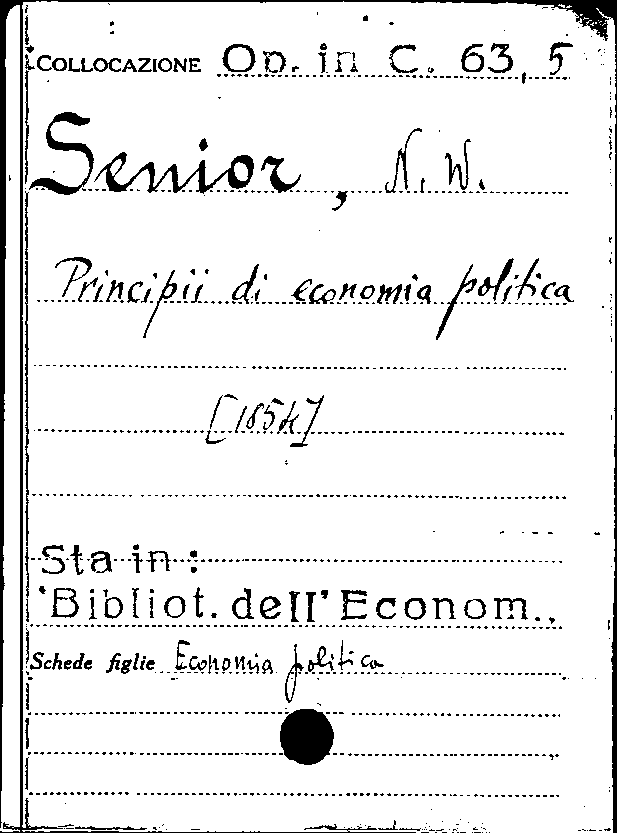 COLLOCAZIONE Op. in C. 63, 5
Senior, N. W.
Principii di economia politica
[1854]
Sta in:
'Bibliot. dell' Econom.,
Schede figlie Economia politica